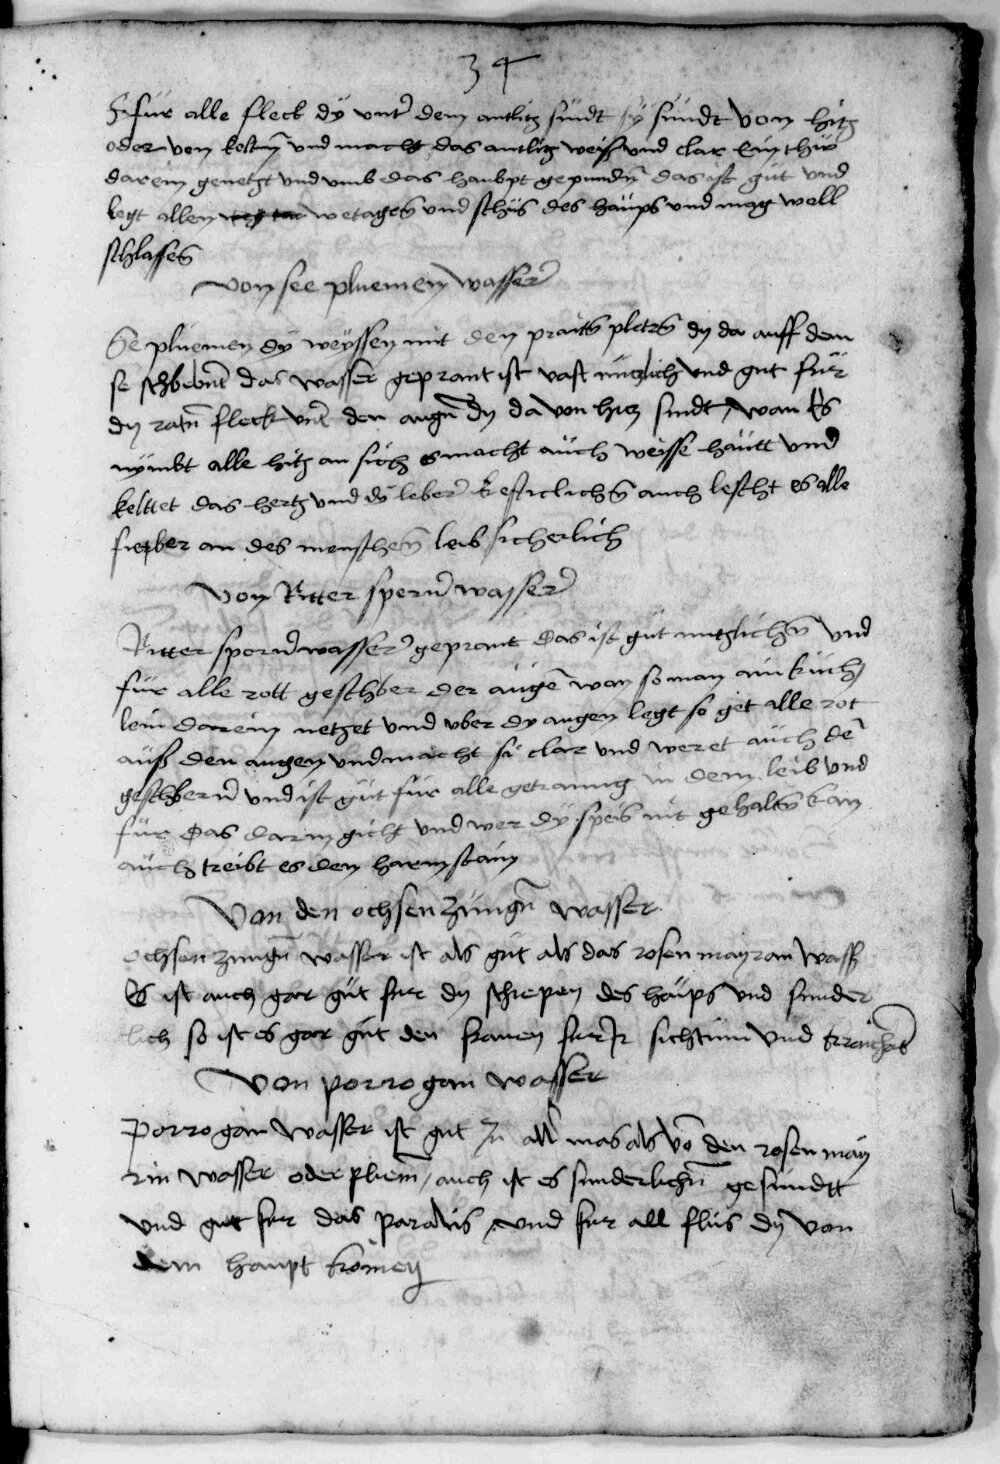 34
für alle fleck dÿ unter dem antlitz sindt sÿ sindt von hitz
oder von keltñ und macht das antlitz weiß und clar Ein thür
darein genetzt und umb das haubpt gepundñ das ist güt und
legt allen wetagen und schüs des haüps und mag well
schlaffen
Von see pluemen wasser
Se pluemen dÿ weÿssen mit den praitñ pletrñ dÿ da auff dem
se schbebnt das wasser geprant ist vast nützlich und gut für
dÿ rotñ fleck unter den augñ dÿ da von hicz sindt, wan Es
nÿmbt alle hitz an sich es macht auch weisse hautt und
keltet das hertz und dÿ leber auch lescht es alle
fieber an des menschen leib sicherlich
Von Ritter sporn wasser
Ritter sporn wasser geprant das ist güt nutzlichñ und
für alle rott geschber der aügen wan so man ain küch
lein darein netzet und uber dÿ augen legt so get alle rot
auß den augen und macht si clar und weret auch de
geschbern und ist güt für alle getranng in dem leib und
für das darm gicht und wer dÿ speis nit gehaltñ kan
auch treibt es den harm stain
Von den ochsen züngñ wasser
ochsen zungñ wasser ist als güt als das rosen mayran wasser
Es ist auch gar güt für dÿ schiepen des haüps und sunder
lich so ist es gar güt den frauen für ir sichtum und
Von porrogan wasser
porrogan wasser ist gut zu all mas als von den rosen may
rin wasser oder pliem, auch ist es sunderlichñ gesündtt
und gut für das paralis und für all flüs dÿ von
dem haupt komen